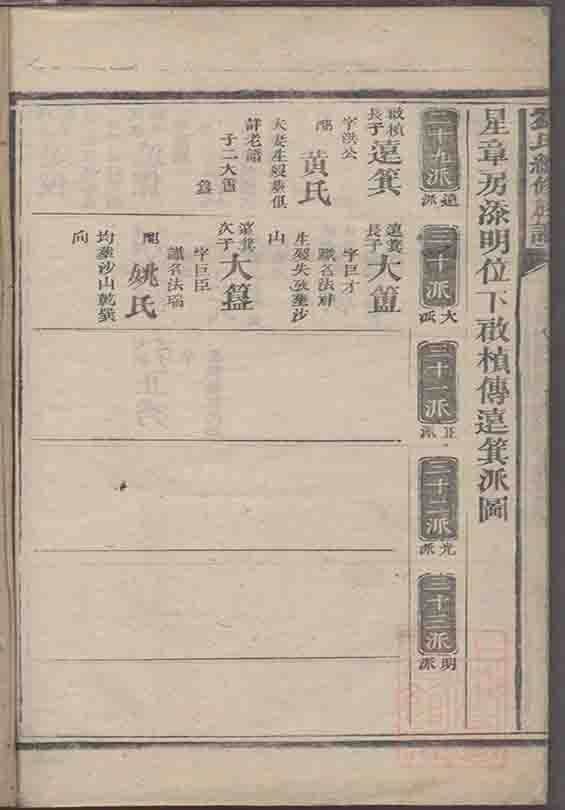 星章房添明位下啟楨傳遠箕派圖
二十九派
遠派
三十派
大派
三十一派
正派
三十二派
光派
三十三派
明派
啟楨
長子
遠箕
字洪公
黃氏
夫妻生歿葬俱
詳老譜
子二大簠
遠箕
長子
大簠
字巨才
職名法
生歿失攷葬沙
山
遠箕
次子
大簋
字巨臣
職名法瑞
姚氏
均葬沙山乾
向